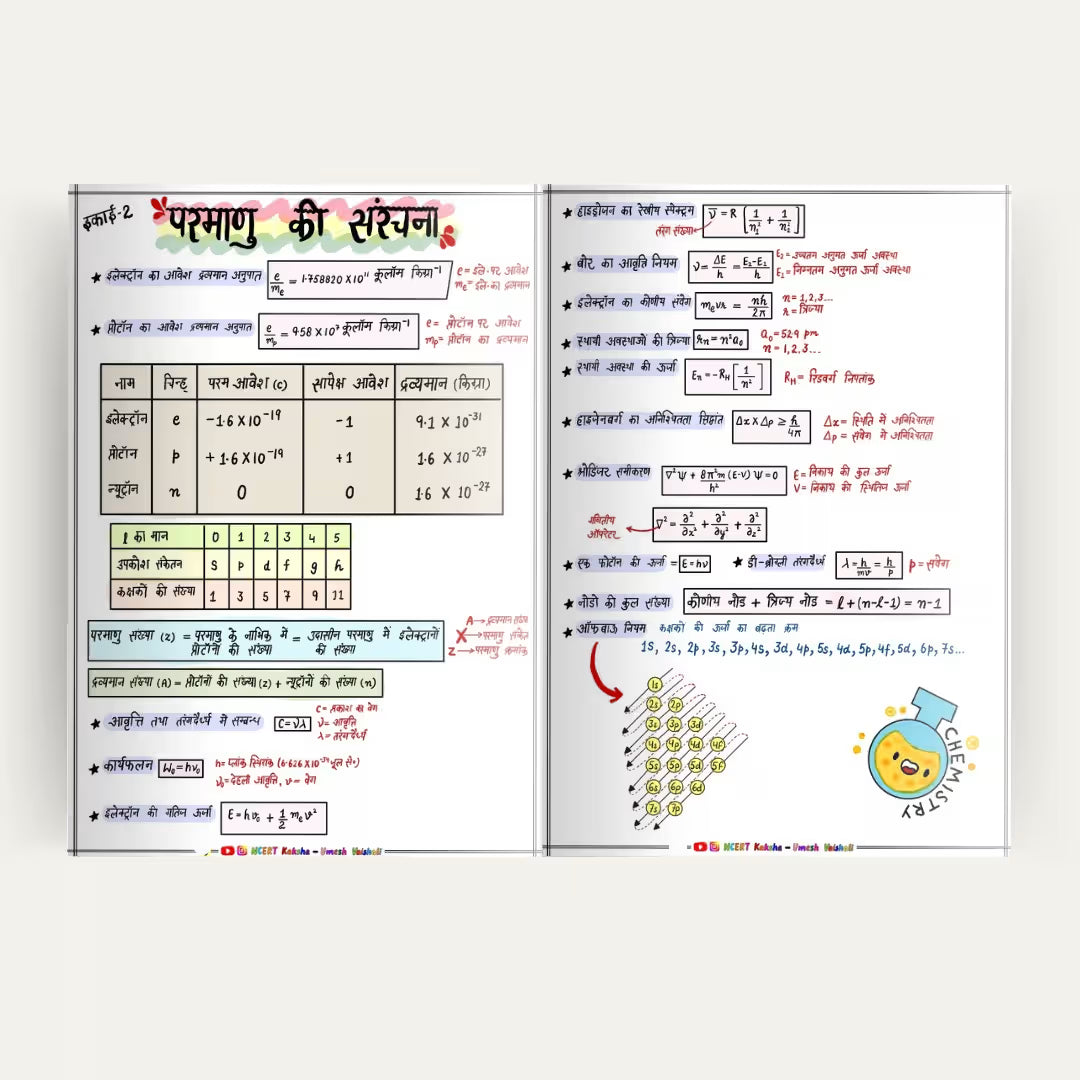 इकाई-2
परमाणु की संरचना
★ इलेक्ट्रॉन का आवेश द्रव्यमान अनुपात e/mₑ = 1.758820 X 10¹¹ कूलॉम किग्रा⁻¹
e = इले० पर आवेश
mₑ = इले० का द्रव्यमान
★ प्रोटॉन का आवेश द्रव्यमान अनुपात e/mₚ = 9.58 X 10⁷ कूलॉम किग्रा⁻¹
e = प्रोटॉन पर आवेश
mₚ = प्रोटॉन का द्रव्यमान
नाम चिन्ह् परम आवेश (c) सापेक्ष आवेश द्रव्यमान (किग्रा)
इलेक्ट्रॉन e -1.6 X 10⁻¹⁹ -1 9.1 X 10⁻³¹
प्रोटॉन p +1.6 X 10⁻¹⁹ +1 1.6 X 10⁻²⁷
न्यूट्रॉन n 0 0 1.6 X 10⁻²⁷
l का मान 0 1 2 3 4 5
उपकोश संकेतन s p d f g h
कक्षकों की संख्या 1 3 5 7 9 11
परमाणु संख्या (z) = परमाणु के नाभिक में = उदासीन परमाणु में इलेक्ट्रानों
प्रोटॉनों की संख्या की संख्या
A→द्रव्यमान संख्या
X→परमाणु संकेत
Z→परमाणु क्रमांक
द्रव्यमान संख्या (A) = प्रोटॉनों की संख्या (z) + न्यूट्रॉनों की संख्या (n)
★ आवृत्ति तथा तरंगदैर्ध्य में सम्बन्ध C = νλ
C = प्रकाश का वेग
ν = आवृत्ति
λ = तरंगदैर्ध्य
★ कार्यफलन W₀ = hν₀
h = प्लांक स्थिरांक (6.626 X 10⁻³⁴ जूल से०)
ν₀ = देहली आवृत्ति, v = वेग
★ इलेक्ट्रॉन की गतिज ऊर्जा E = hν₀ + 1/2 mₑv²
NCERT Kaksha - Umesh Vaishali
★ हाइड्रोजन का रेखीय स्पेक्ट्रम ν̅ = R [1/n₁² + 1/n₂²]
तरंग संख्या
★ बोर का आवृति नियम ν = ΔE/h = E₂-E₁/h
E₂ = उच्चतम अनुमत ऊर्जा अवस्था
E₁ = निम्नतम अनुमत ऊर्जा अवस्था
★ इलेक्ट्रॉन का कोणीय संवेग mₑvr = nh/2π
n = 1,2,3...
r = त्रिज्या
★ स्थायी अवस्थाओं की त्रिज्या rn = n²a₀
a₀ = 52.9 pm
n = 1,2,3...
★ स्थायी अवस्था की ऊर्जा Eₙ = -R_H [1/n²] R_H = रिडवर्ग नियतांक
★ हाइजेनबर्ग का अनिश्चितता सिद्वांत Δx X Δp ≥ h/4π
Δx = स्थिति में अनिश्चितता
Δp = संवेग में अनिश्चितता
★ श्रोडिंजर समीकरण ∇²ψ + 8π²m/h² (E-V) ψ = 0
E = निकाय की कुल ऊर्जा
V = निकाय की स्थितिज ऊर्जा
गणितीय
ऑपरेटर
∇² = ∂²/∂x² + ∂²/∂y² + ∂²/∂z²
★ एक फोटॉन की ऊर्जा = E = hν ★ डी-ब्रोग्ली तरंगदैर्ध्य λ = h/mv = h/p p = संवेग
★ नोडो की कुल संख्या कोणीय नोड + त्रिज्य नोड = l + (n-l-1) = n-1
★ ऑफबाऊ नियम कक्षकों की ऊर्जा का बढ़ता क्रम
1s, 2s, 2p, 3s, 3p, 4s, 3d, 4p, 5s, 4d, 5p, 4f, 5d, 6p, 7s...
1s
2s 2p
3s 3p 3d
4s 4p 4d 4f
5s 5p 5d 5f
6s 6p 6d
7s 7p
CHEMISTRY
NCERT Kaksha - Umesh Vaishali